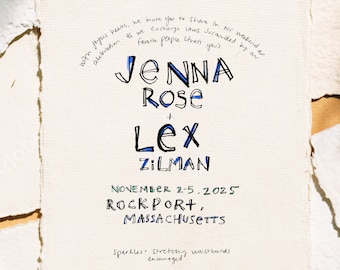 with joyous hearts, we invite you to share in our weekend of
celebration as we exchange vows surrounded by our
favorite people (that's you!)
JENNA
ROSE
+
LEX
ZILMAN
NOVEMBER 2-5, 2025
ROCKPORT,
MASSACHUSETTS
sparkles + stretchy waistbands
encouraged